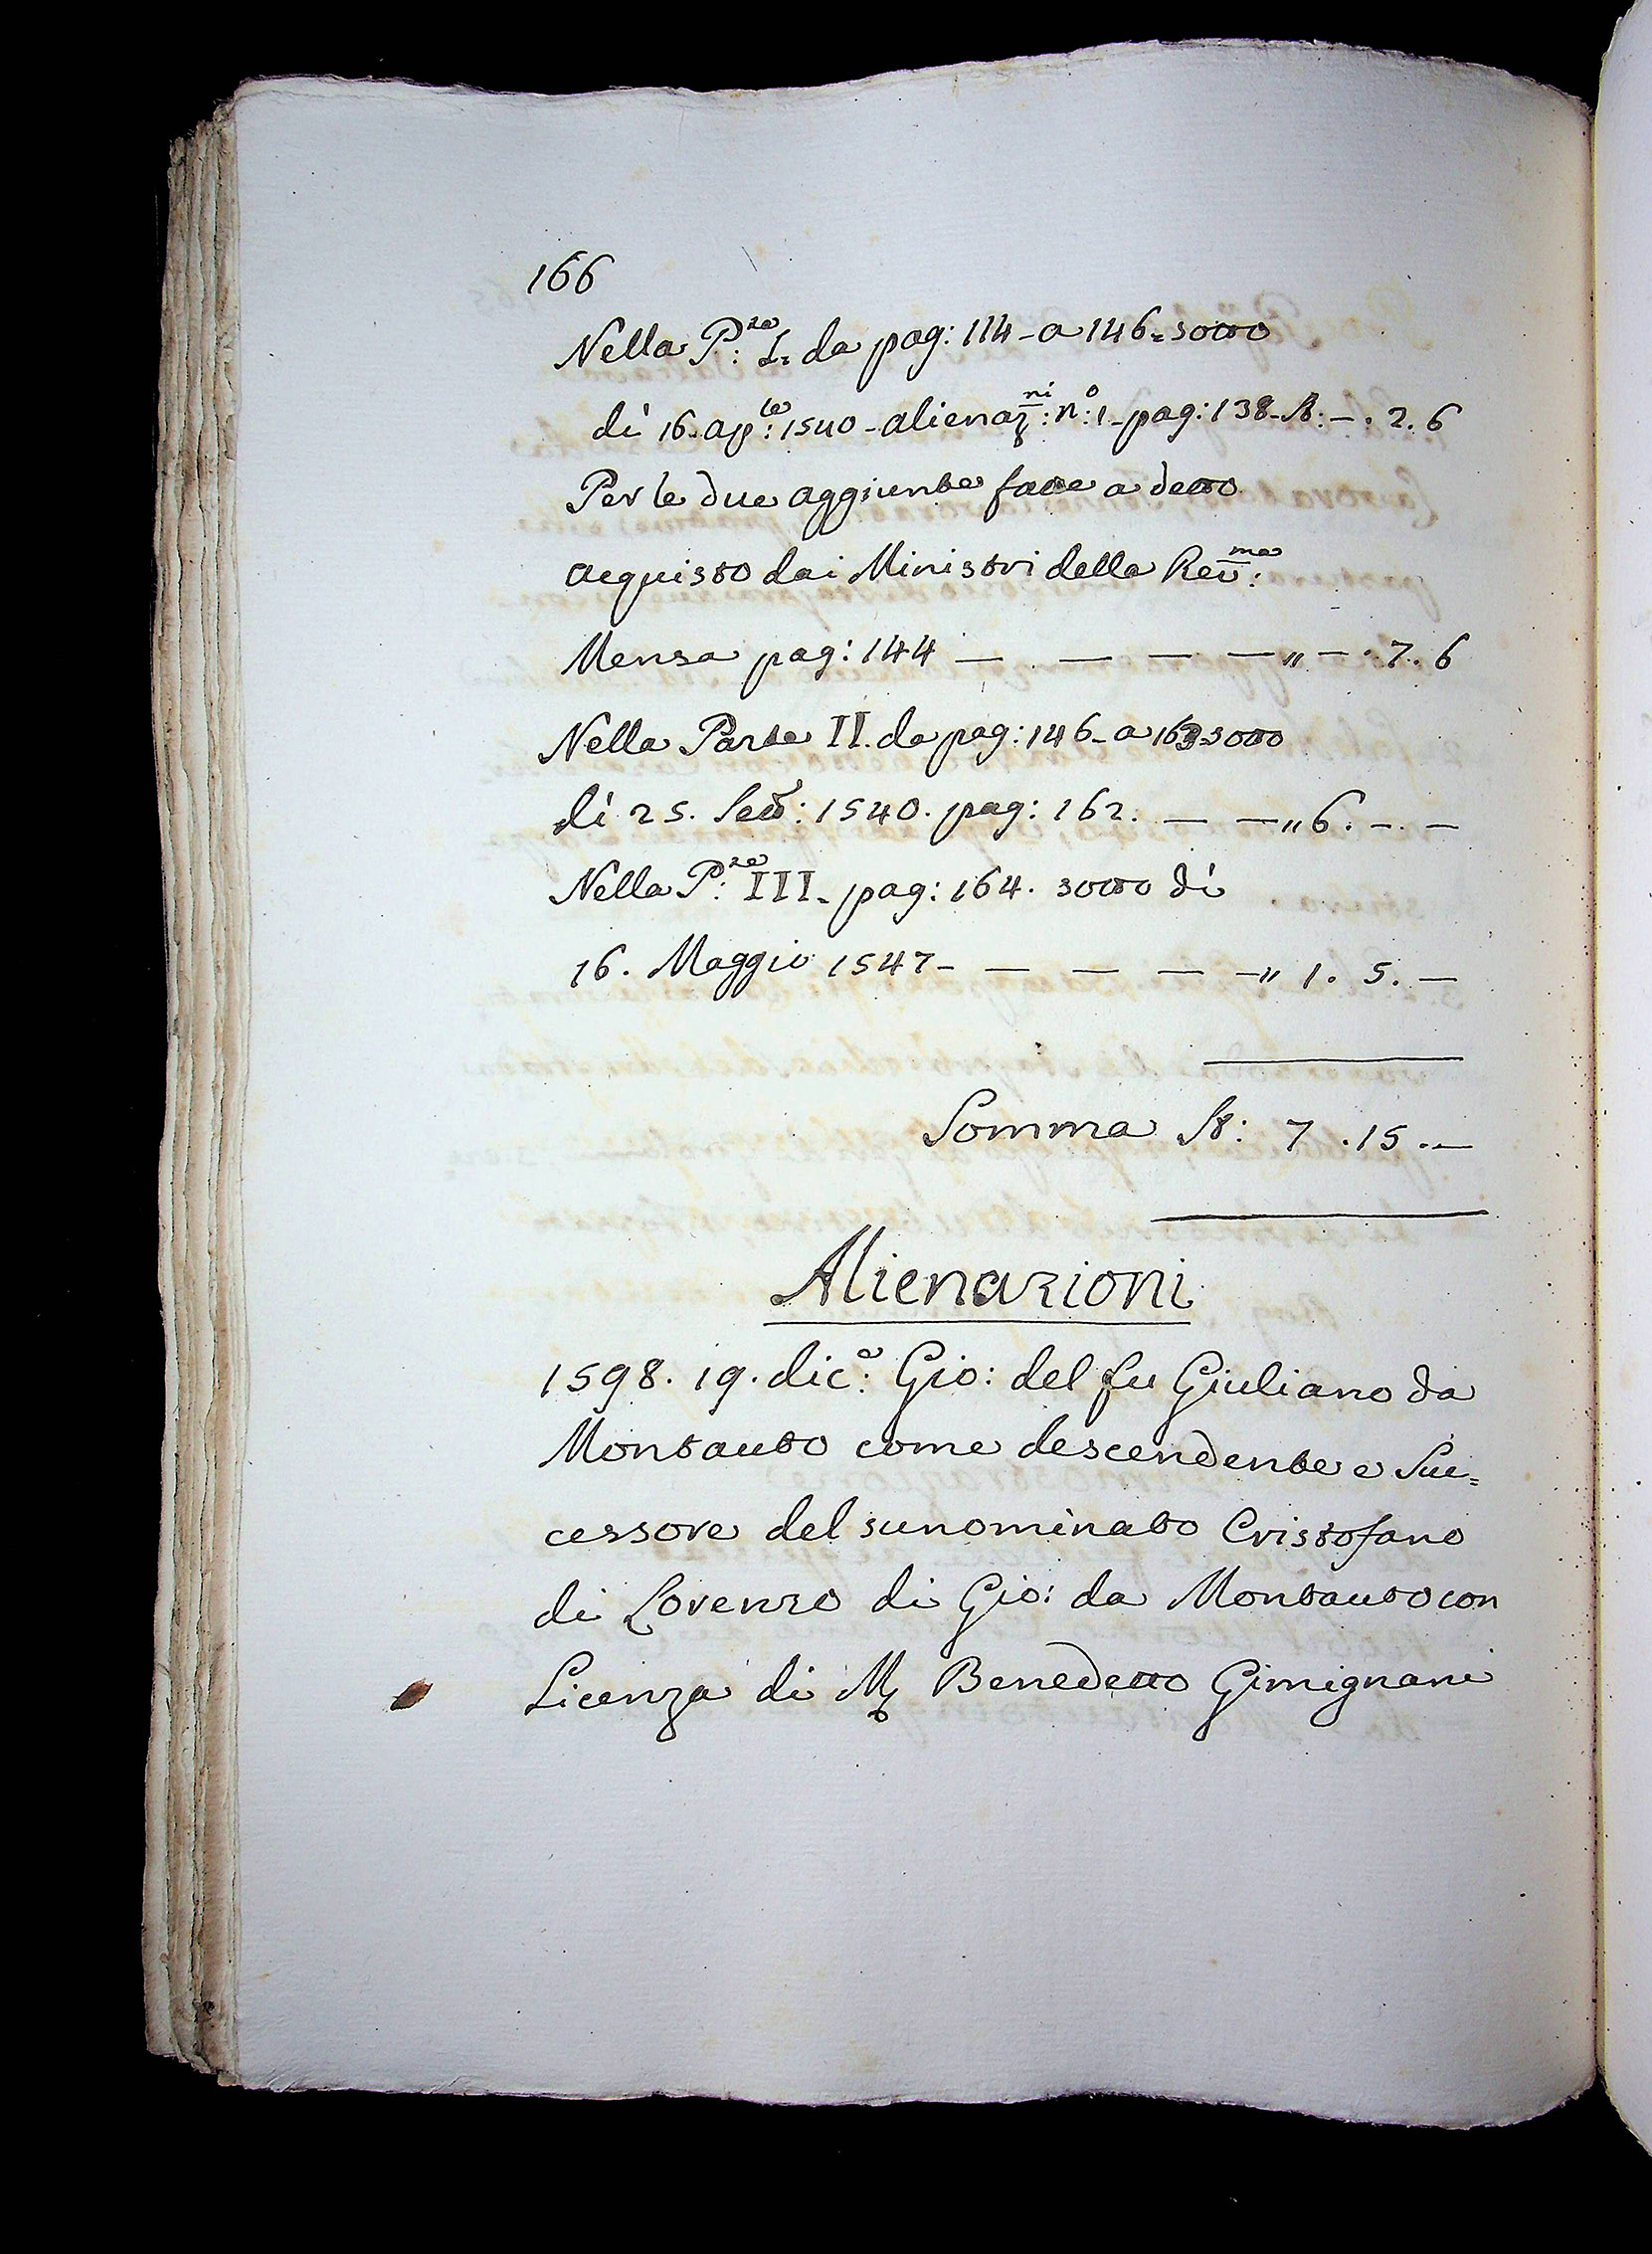 166
Nella P:te I. da pag: 114 - a 146 = sotto
dì 16. ap:le 1540 - alienaz:ni n:o 1 - pag: 138 - St: - . 2. 6
Per le due aggiunte fatte a detto
acquisto dai Ministri della Rev:ma
Mensa pag: 144 — — — — " - . 7. 6
Nella Parte II. da pag: 146 - a 163 - sotto
dì 25. Sett: 1540. pag: 162. — — " 6. - . —
Nella P:te III. pag: 164. sotto dì
16. Maggio 1547 - — — — - " 1. 5. —
Somma St: 7 . 15 . —
Alienazioni
1598. 19. dic:e Gio: del fu Giuliano da
Montauto come descendente e Suc=
cessore del sunominato Cristofano
di Lorenzo di Gio: da Montauto con
Licenza di M Benedetto Gimignani